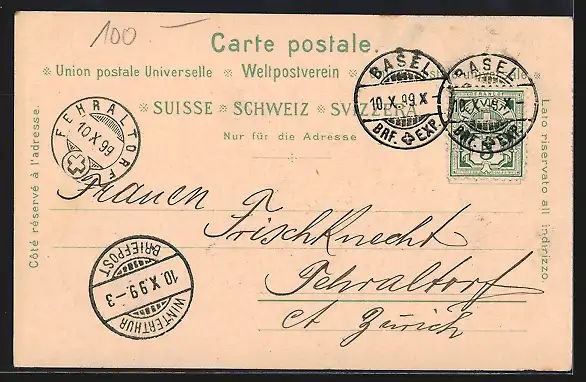 100
Carte postale.
Union postale Universelle Weltpostverein
SUISSE SCHWEIZ SVIZZERA
Nur für die Adresse
Côté réservé à l'adresse.
Lato riservato all indirizzo.
BASEL
10.X.99.X
BRF. EXP.
BASEL
10.X
BRF. EXP.
FEHRALTORF
10 X 99
WINTERTHUR
10.X.99.-3
BRIEFPOST
Frauen
Frischknecht
Fehraltorf
Ct Zürich